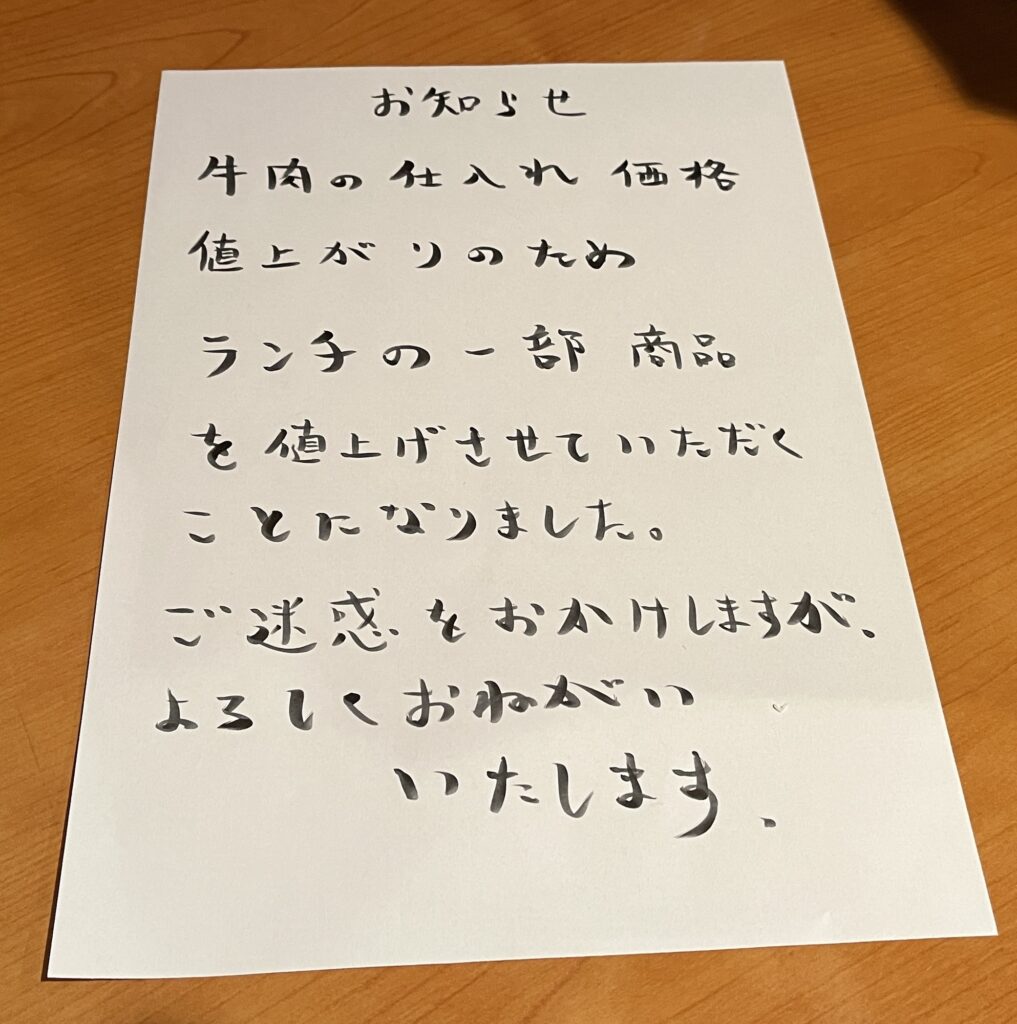 お知らせ
牛肉の仕入れ価格
値上がりのため
ランチの一部商品
を値上げさせていただく
ことになりました。
ご迷惑をおかけしますが、
よろしくおねがい
いたします、